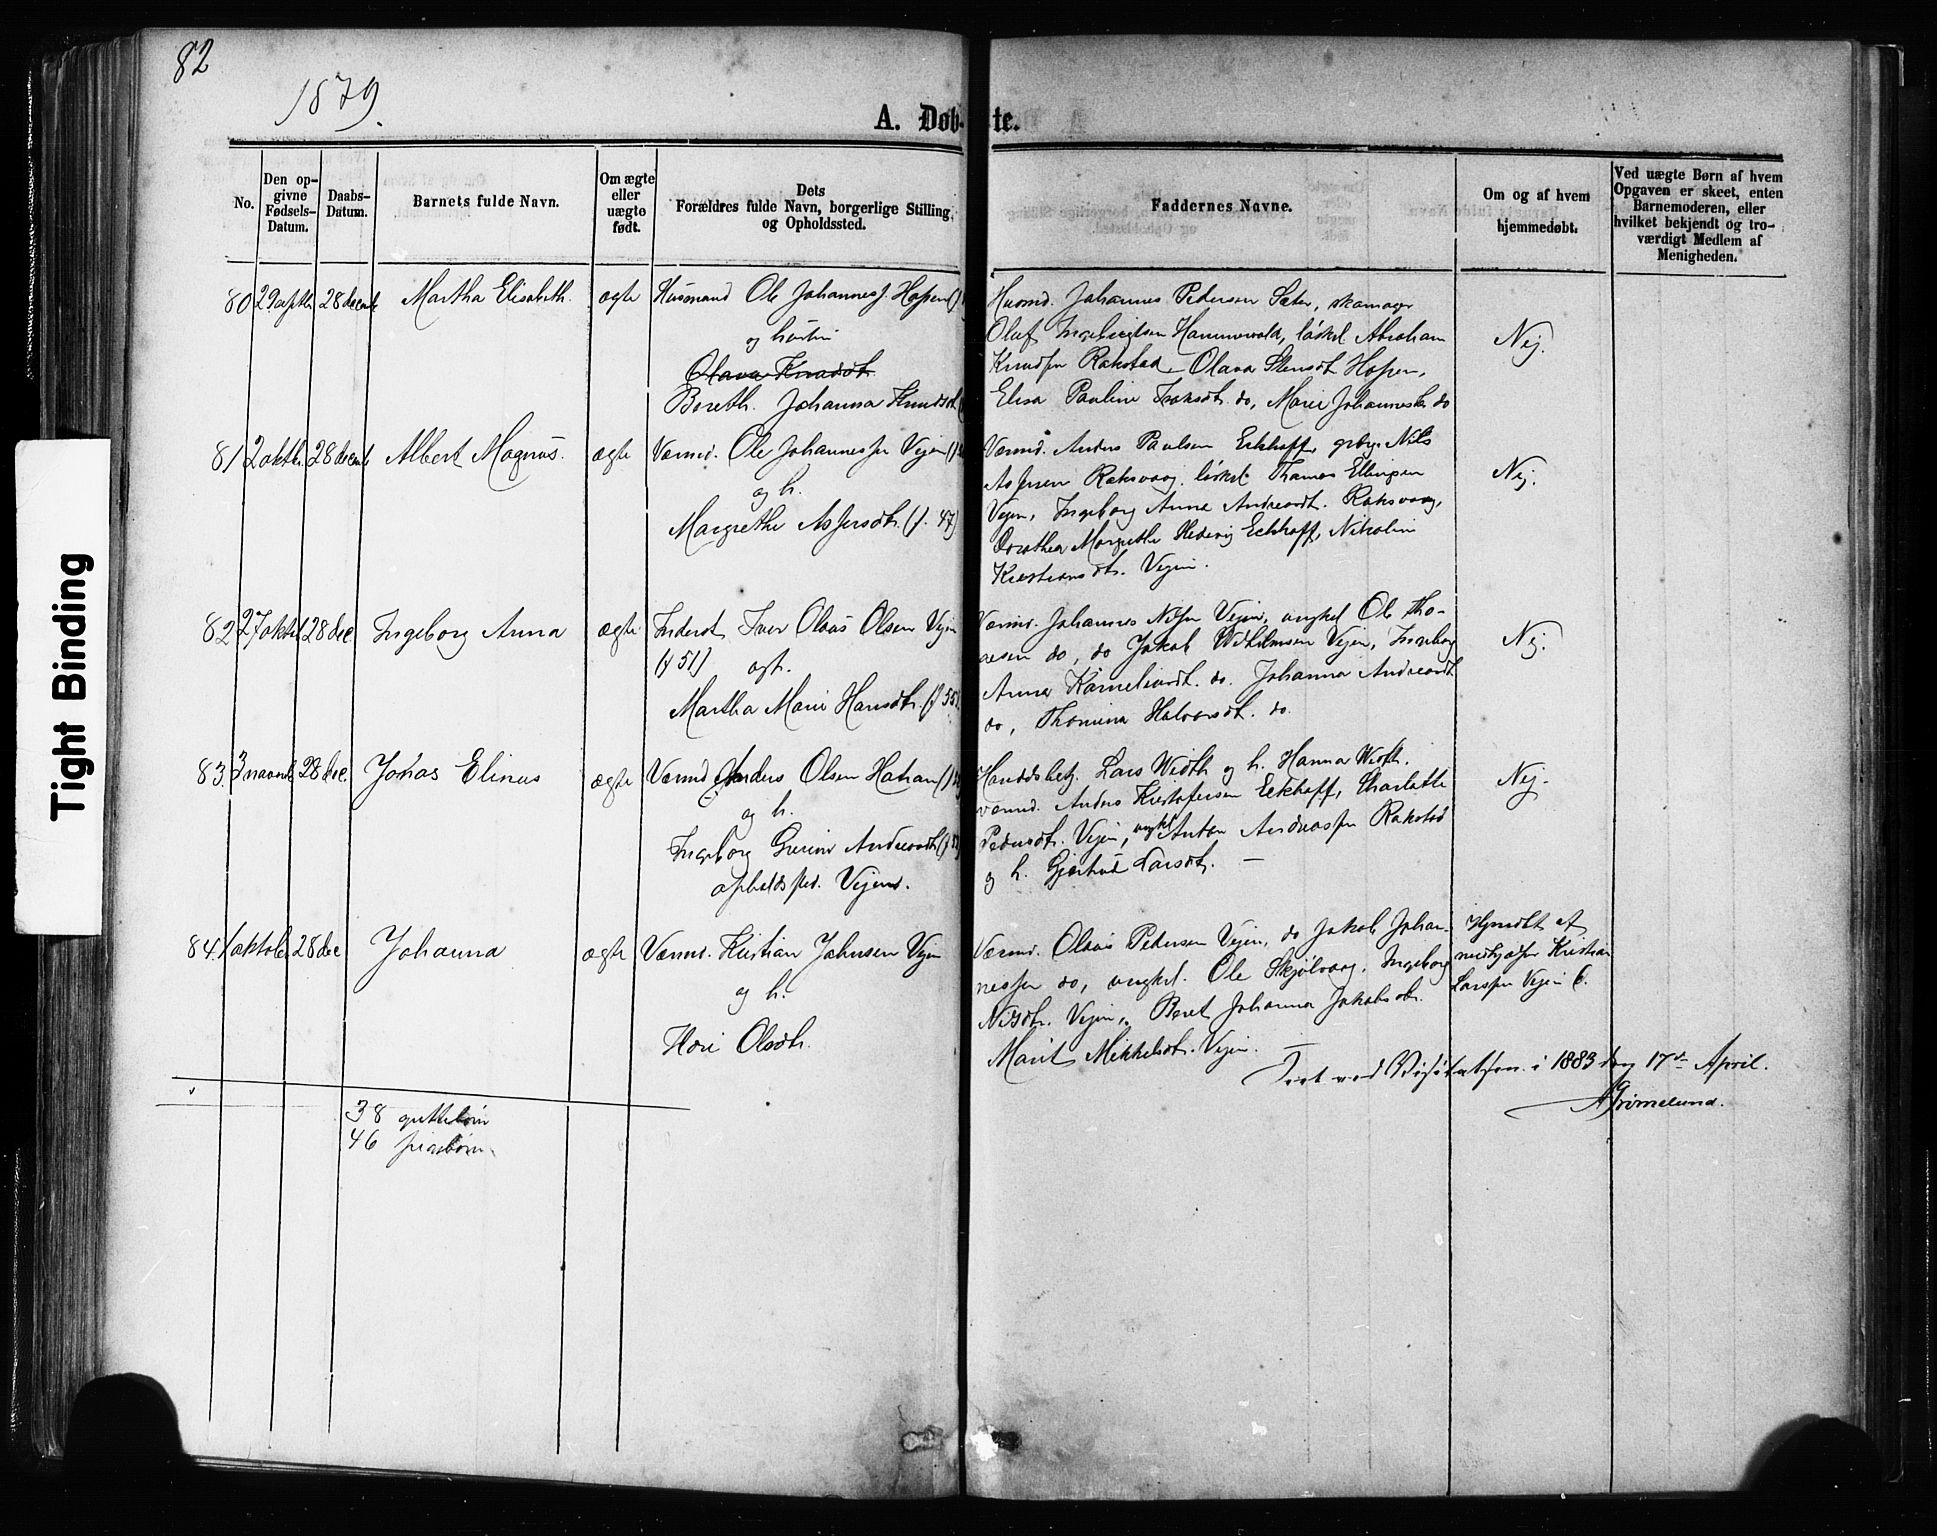 82
1879.
A. Døb-te.
No.
Den op-
givne
Fødsels-
Datum.
Daabs-
Datum.
Barnets fulde Navn.
Om ægte
eller
uægte
født.
Dets
Forældres fulde Navn, borgerlige Stilling,
og Opholdssted.
Faddernes Navne.
Om og af hvem
hjemmedøbt.
Ved uægte Børn af hvem
Opgaven er skeet, enten
Barnemoderen, eller
hvilket bekjendt og tro-
værdigt Medlem af
Menigheden.
80 28 decemb Martha Elisabeth. ægte Husmand Ole Johanness. Hopen
og hustru
Olava Knudsdt.
Bereth. Johanna Knudsdt.
Husmd. Johannes Pedersen Sæter, skomager
Oluf Ingebrigtsen Hammervold, løskd. Abraham
Knudsen Rakstad, Olava Stensdt. Hopen,
Elisa Pauline Isaksdt. do, Marie Johannesdt. do
Nej.
81 2 oktb. 28 decemb Albert Magnus. ægte Værmd. Ole Johannessen Vejen
og h.
Margrethe Aspersdt. (f. 47)
Værmd. Anders Paulsen Eckhoff, grbrgr. Nils
Aspersen Raksvaag. løskd. Thomas Ellingsen
Vejen, Ingeborg Anna Andreasdt. Raksvaag,
Dorothea Margrethe Hedevig Eckhoff, Nikoline
Kristiansdt. Vejen.
Nej.
82 27 oktb 28 dec Ingeborg Anna ægte Inderst Iver Olaus Olsen Vejen
(f 51) og h.
Martha Marie Hansdt. (f 55).
Værmd. Johannes Nilsen Vejen, ungkd. Ole Tho-
mesen do, do Jakob Wilhelmsen Vejen, Ingeborg
Anna Korneliusdt. do. Johanna Andreasdt
do, Thomina Halvorsdt. do.
Nej.
83. 3 novemb 28 dec. Johas Elinus ægte Værmd Anders Olsen
og h.
Ingeborg Andreasdt.
opholdssted. Vejen.
Handelsbetj. Lars Width og h. Hanna Width.
værmd. Anders Kristofersen Eckhoff, Charlotte
Pedersdt. Vejen, ungkd. Anton Andreassen Rakstad
og h. Gjertrud Larsdt. —
Nej.
84. 1 oktob. 28 dec Johanna ægte Værmd. Kristian Johnsen Vejen
og h.
Olsdt.
Værmd. Olaus Pedersen Vejen, do Jakob Johan-
nessen do, ungkd. Ole Skjølvaag, Ingeborg
Nilsdt. Vejen, Beret Johanna Jakobsdt.
Marit Mikkelsdt. Vejen. —
Hjmdbt af
Kristian
Larssen Vejen
38 guttebørn
46 pigebørn.
ved Visitatsen i 1883 den 17de April.
Grimelund.
Tight Binding